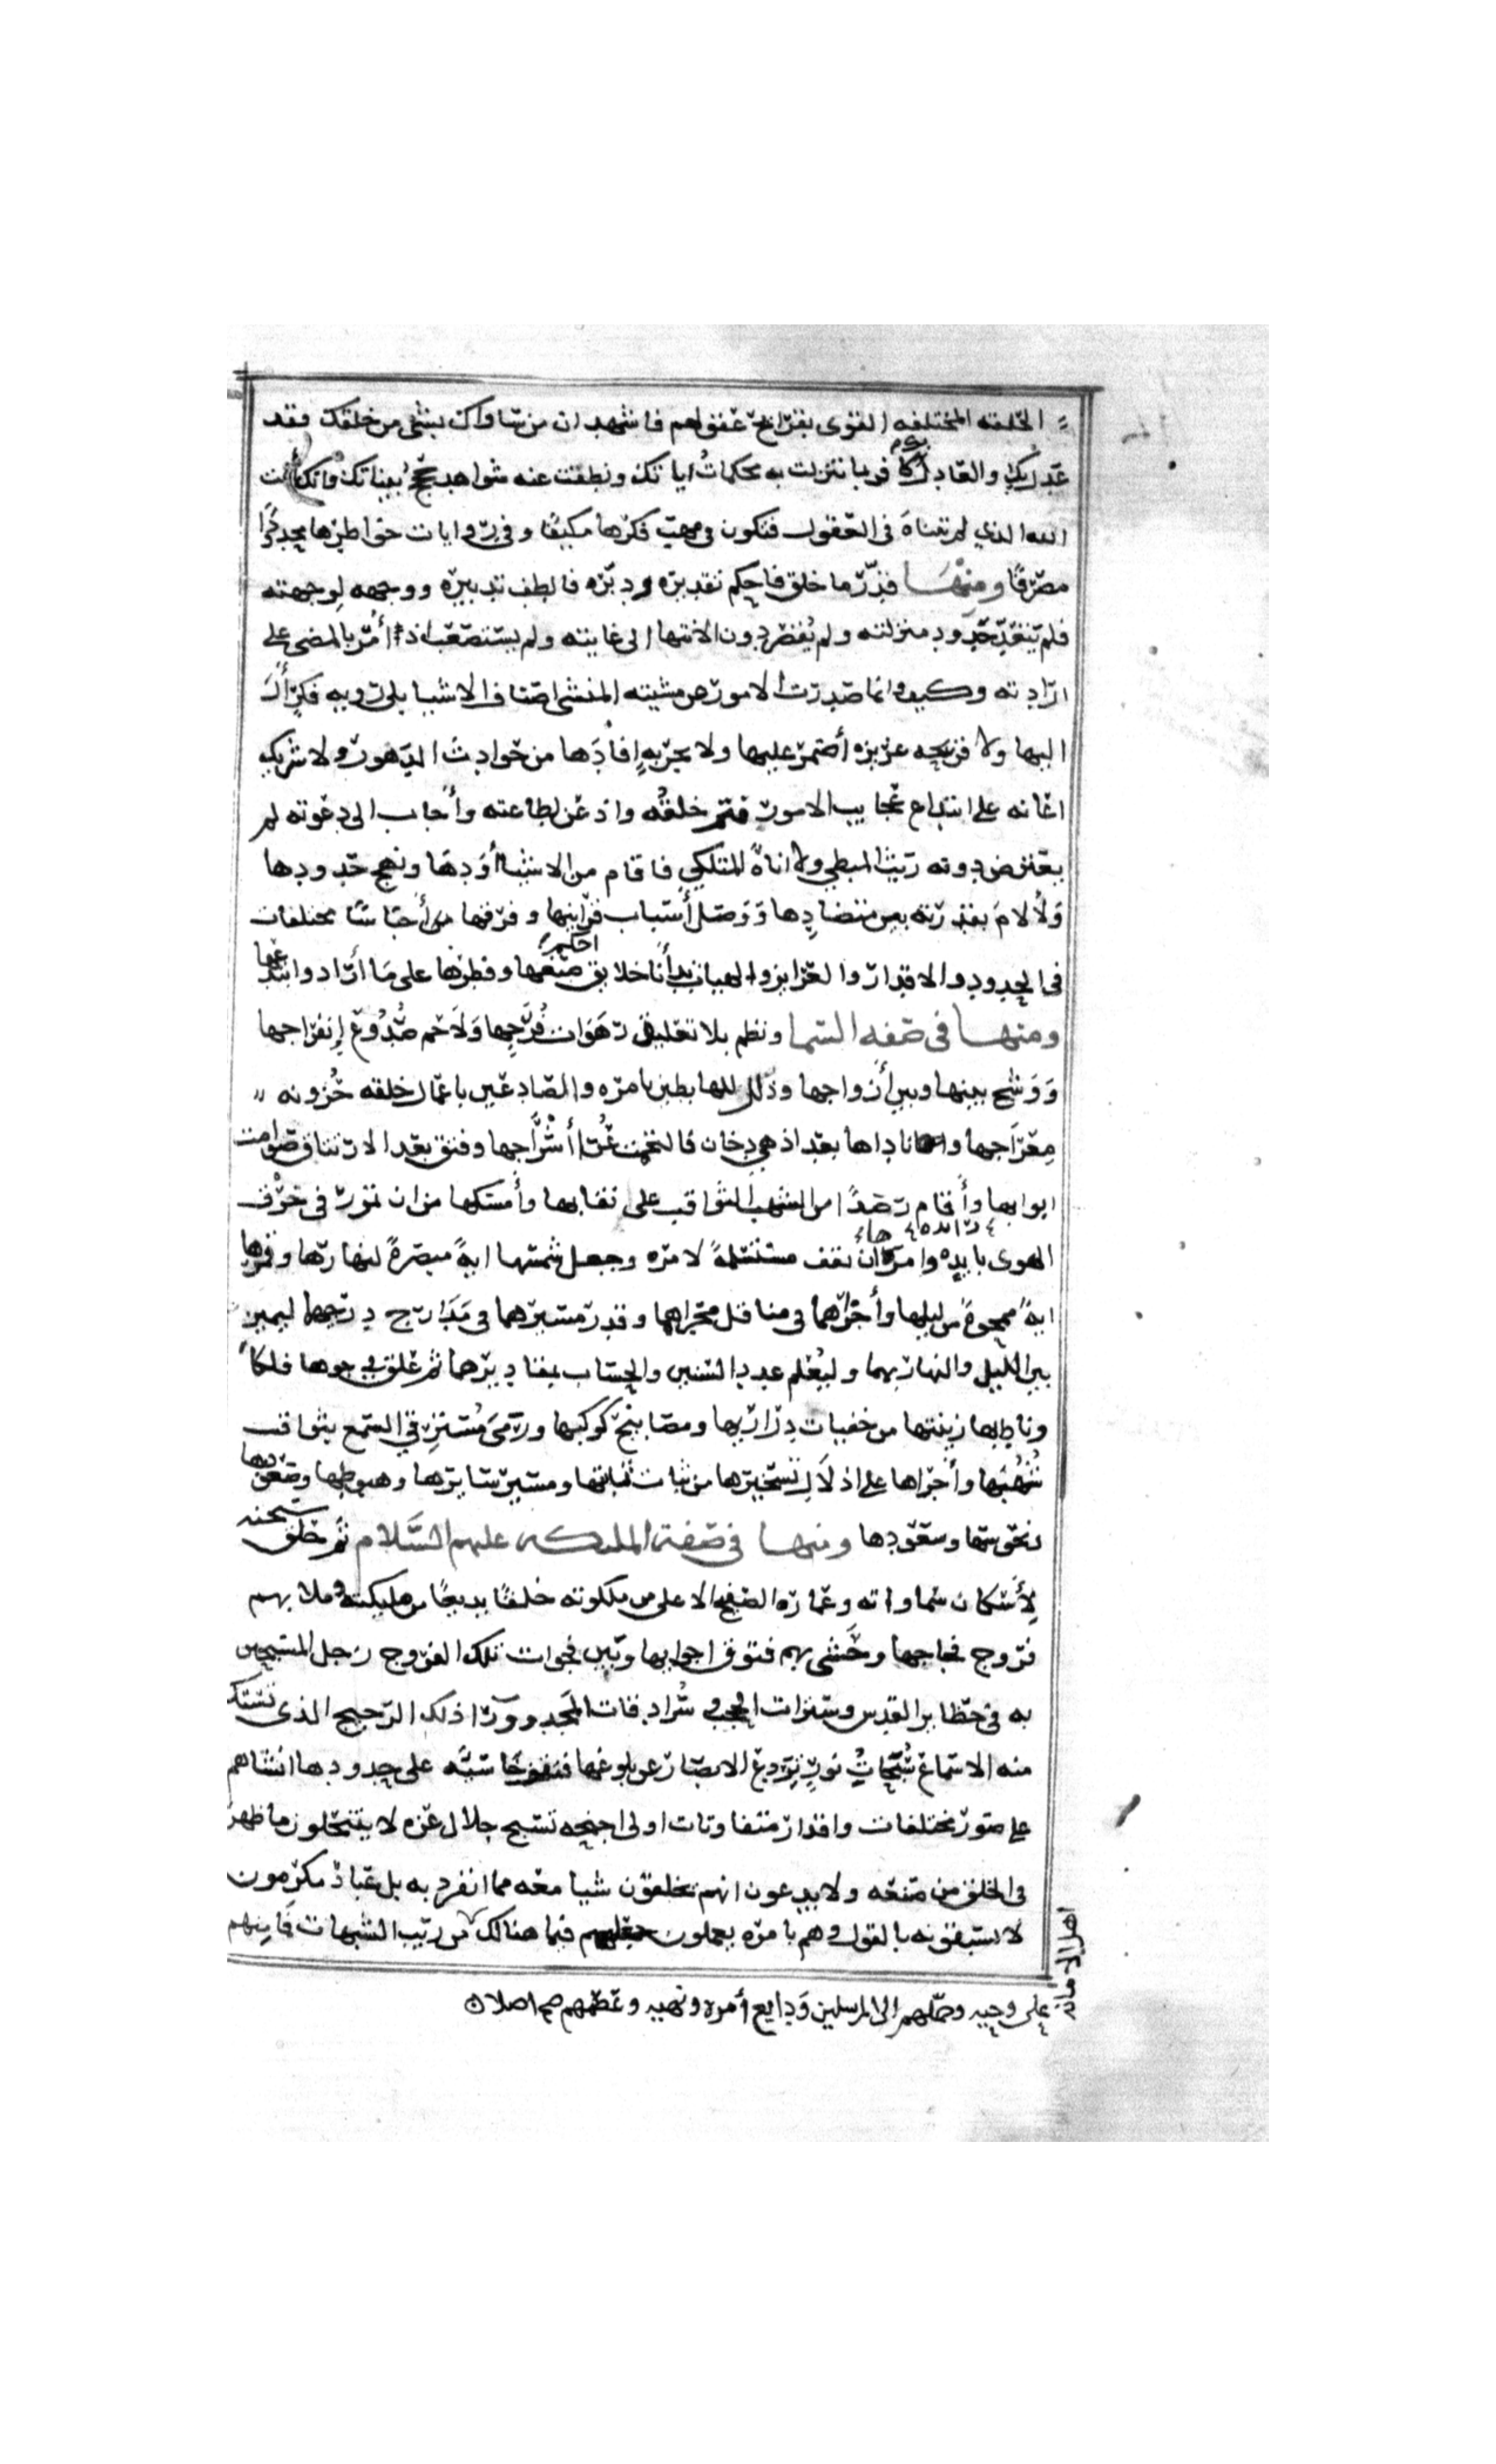 الخلقه المختلفه القوى بقرائح عقولهم فاشهد ان من ساواك بشى من خلقك فقد
عدل بك والعادل بك كافر بما تنزلت به محكمات اياتك ونطقت عنه شواهد حجج بيناتك وانك انت
الله الذي لم تتناه فى العقول فتكون فى مهب فكرها مكيفا و فى رويات خواطرها محدودا
مصرفا ومنها قدر ما خلق فاحكم تقديره ودبره فالطف تدبيره ووجهه لوجهته
فلم يتعد حدود منزلته ولم يقصر دون الانتها الى غايته ولم يستصعب اذ أمر بالمضى على
ارادته وكيف وانما صدرت الامور عن مشيته المنشى اصناف الاشيا بلا رويه فكر أل
اليها ولا قريحه غريزه أضمر عليها ولا تجربه افادها من حوادث الدهور ولا شريك
اعانه على ابتداع عجايب الامور فتم خلقه واذعن لطاعته وأجاب الى دعوته لم
يعترض دونه ريث المبطي ولا اناة المتلكي فاقام من الاشيا أودها ونهج حدودها
ولاءم بقدرته بين متضادها ووصل أسباب قراينها وفرقها أجناسا مختلفات
فى الحدود والاقدار والغرايز والهيات بدأنا خلايق احكم صنعها وفطرها على ما أراد وابتدعها
ومنها فى صفه السما ونظم بلا تعليق رهوات فرجها ولاحم صدوع إنفراجها
ووشج بينها وبين أزواجها وذلل للهابطين بامره والصاعدين باعمال خلقه حزونه
معراجها وناداها بعد اذ هي دخان فالتحمت عرى أشراجها وفتق بعد الارتتاق صوامت
ابوابها وأقام رصدا من الشهب الثواقب على نقابها وأمسكها من ان تمور في خرق
الهوى بايده وامرها أن تقف مستسلمة لامره وجعل شمسها اية مبصرة لنهارها وقمرها
اية ممحوة من ليلها وأجراهما فى مناقل مجراهما وقدر مسيرهما في مدارج درجهما ليميز
بين الليل والنهار بهما وليعلم عدد السنين والحساب بمقاديرهما ثم علق في جوها فلكا
وناط بها زينتها من خفيات دراريها ومصابيح كواكبها ورمى مسترقي السمع بثواقب
شهبها وأجراها على اذلال تسخيرها من ثبات ثابتها ومسير سايرها وهبوطها وصعودها
ونحوسها وسعودها ومنها فى صفة الملئكه عليهم السلام ثم خلق سبحنه
لإسكان سماواته وعماره الصفيح الاعلى من ملكوته خلقا بديعا من مليكته وملا بهم
فروج فجاجها وحشى بهم فتوق اجوابها وبين فجوات تلك الفروج زجل المسبحين
به فى حظاير القدس وسترات الحجب وسرادقات المجد وورا ذلك الرجيج الذى تستك
منه الاسماع سبحات نور تردع الابصار عن بلوغها فتقف خاسئه على حدودها انشاهم
على صور مختلفات واقدار متفاوتات اولى اجنحه تسبح جلال عزه لا ينتحلون ما ظهر
فى الخلق من صنعه ولا يدعون انهم يخلقون شيا معه مما انفرد به بل عباد مكرمون
لا يسبقونه بالقول وهم بامره يعملون جعلهم فيما هنالك من ريب الشبهات فما منهم
اهل الامانة
على وحيه وحملهم الى المرسلين ودايع أمره ونهيه وعصمهم صح اصلا